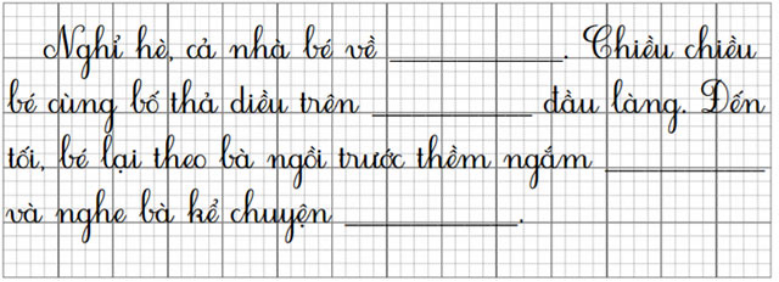 Nghỉ hè, cả nhà bé về ____________. Chiều chiều
bé cùng bố thả diều trên ____________ đầu làng. Đến
tối, bé lại theo bà ngồi trước thềm ngắm ____________
và nghe bà kể chuyện ____________.